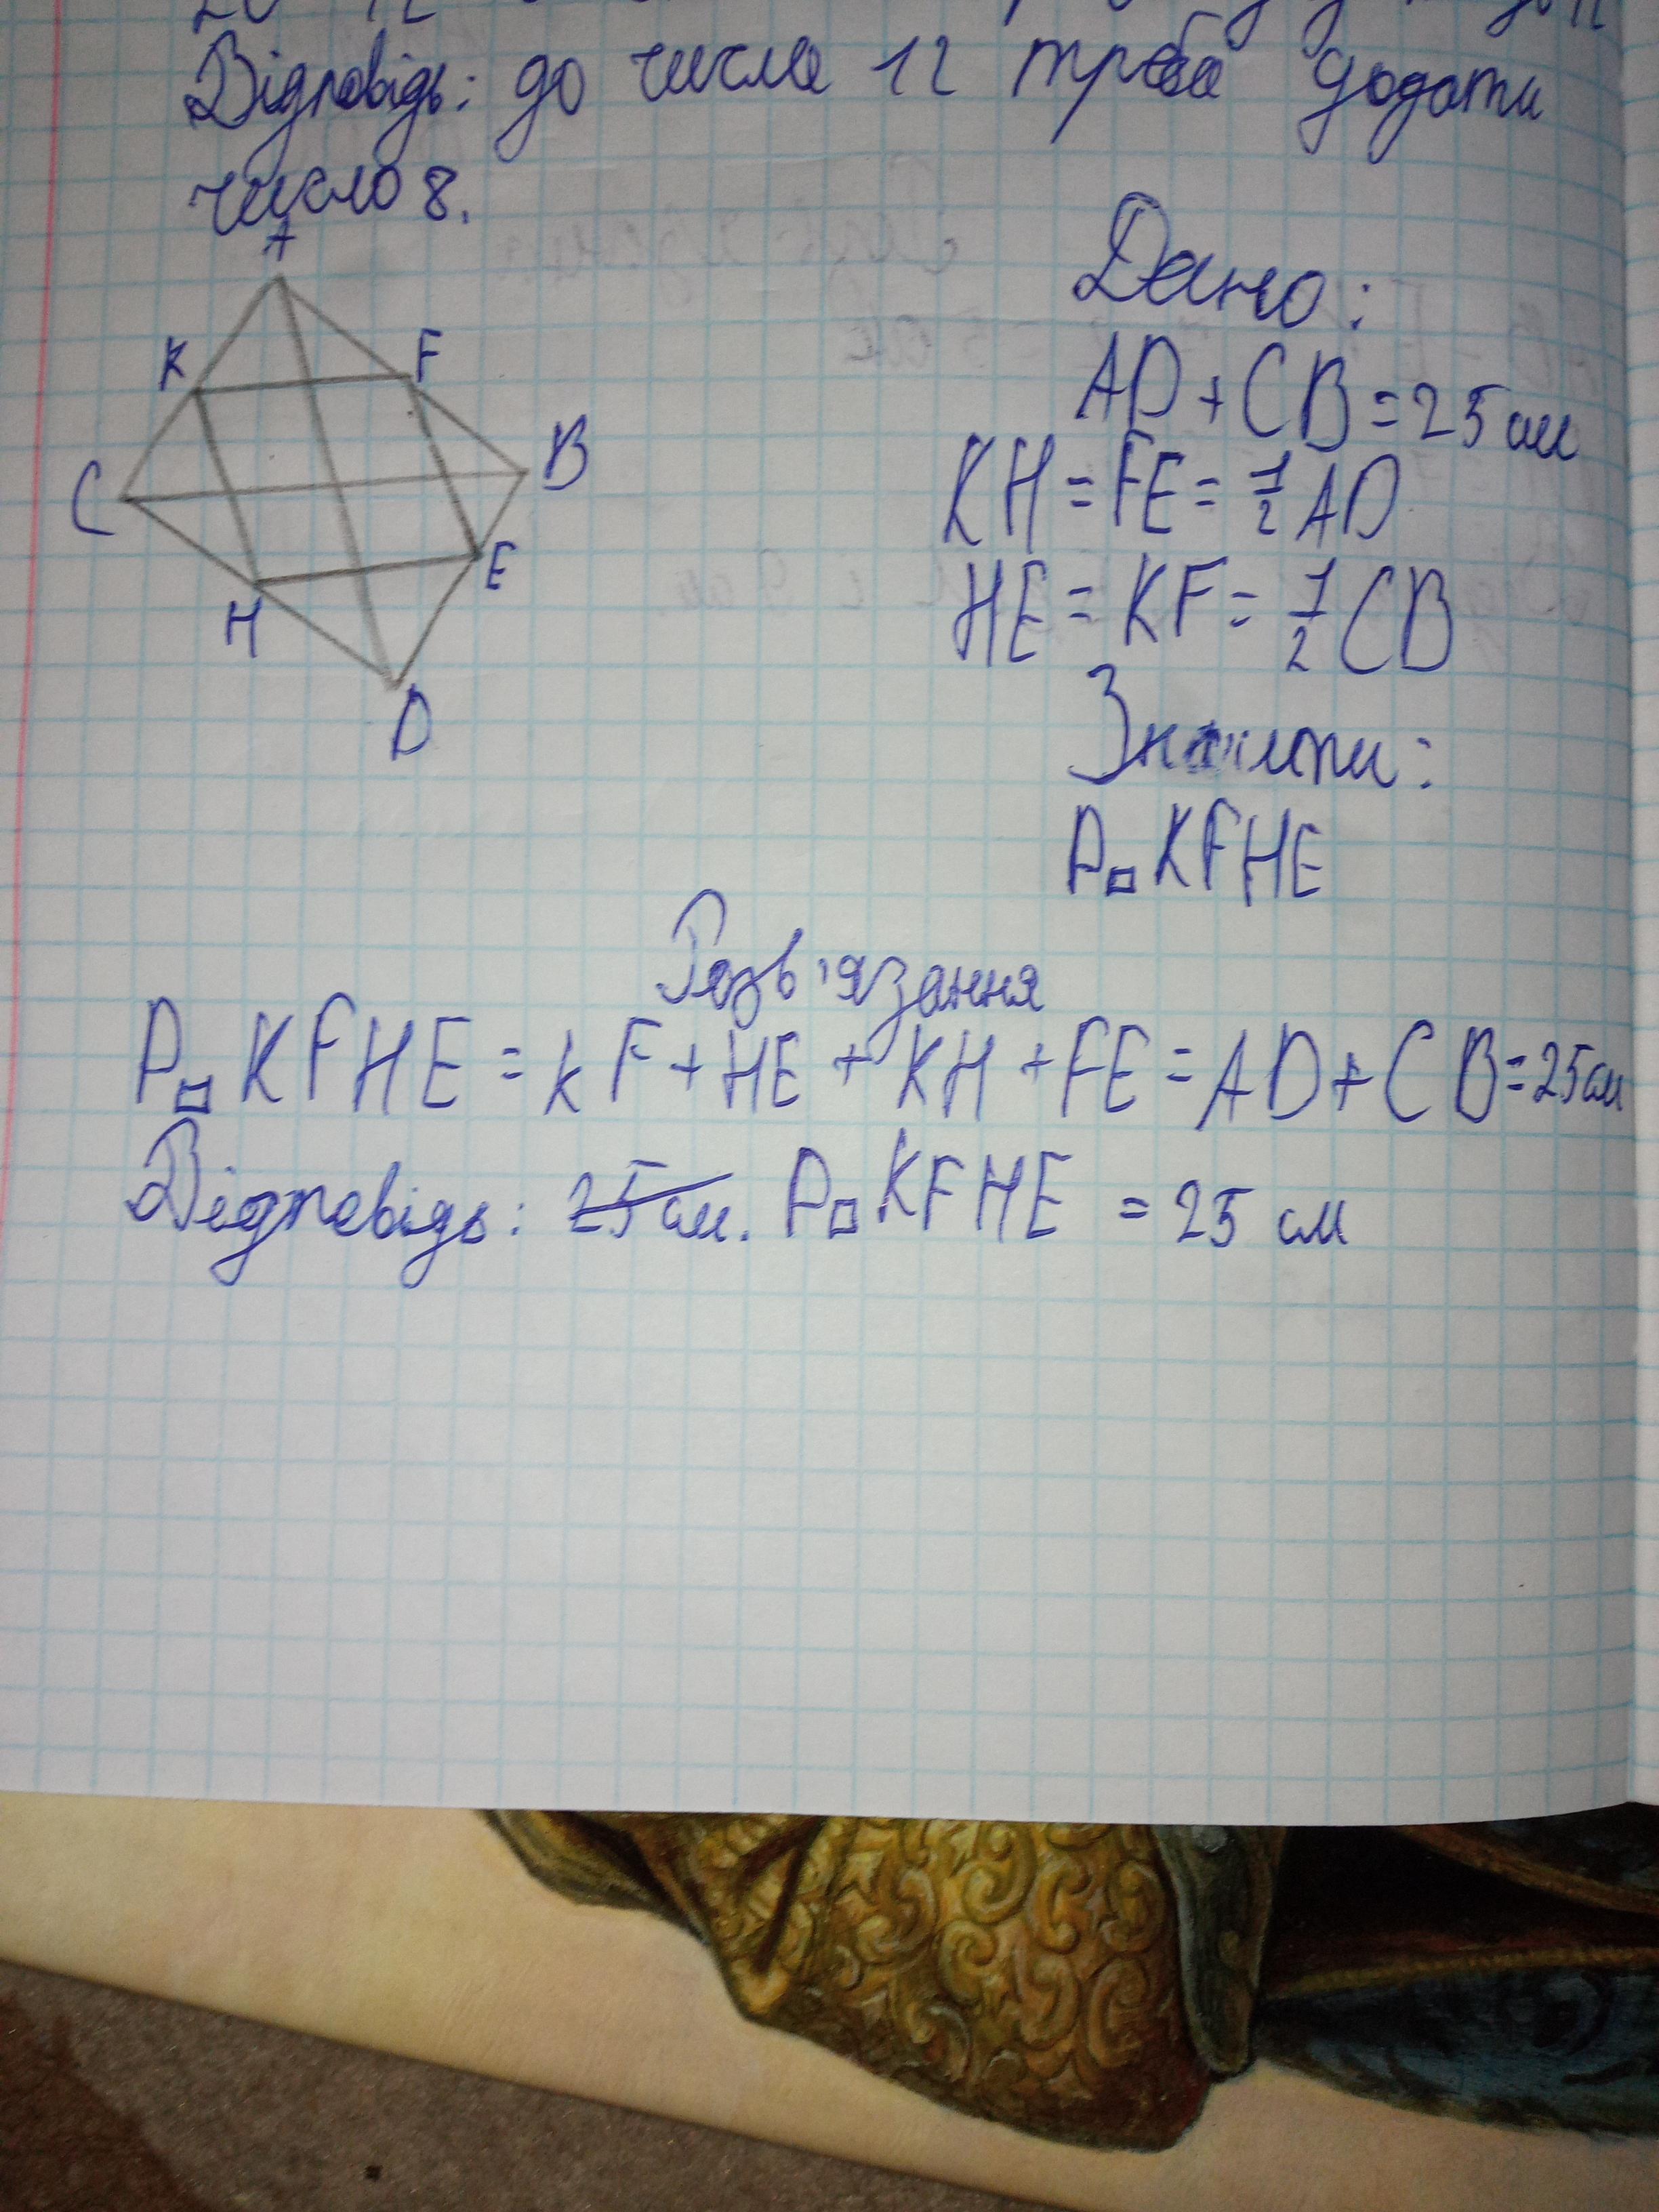 20 12
Відповідь: до числа 12 треба додати
число 8.
A
K
F
C
B
E
H
D
Дано:
AD + CB = 25 см
KH = FE = 1/2 AD
HE = KF = 1/2 CB
Знайти:
P▫ KFHE
Розв'язання
P▫ KFHE = kF + HE + KH + FE = AD + CB = 25 см
Відповідь: 25 см. P▫ KFHE = 25 см